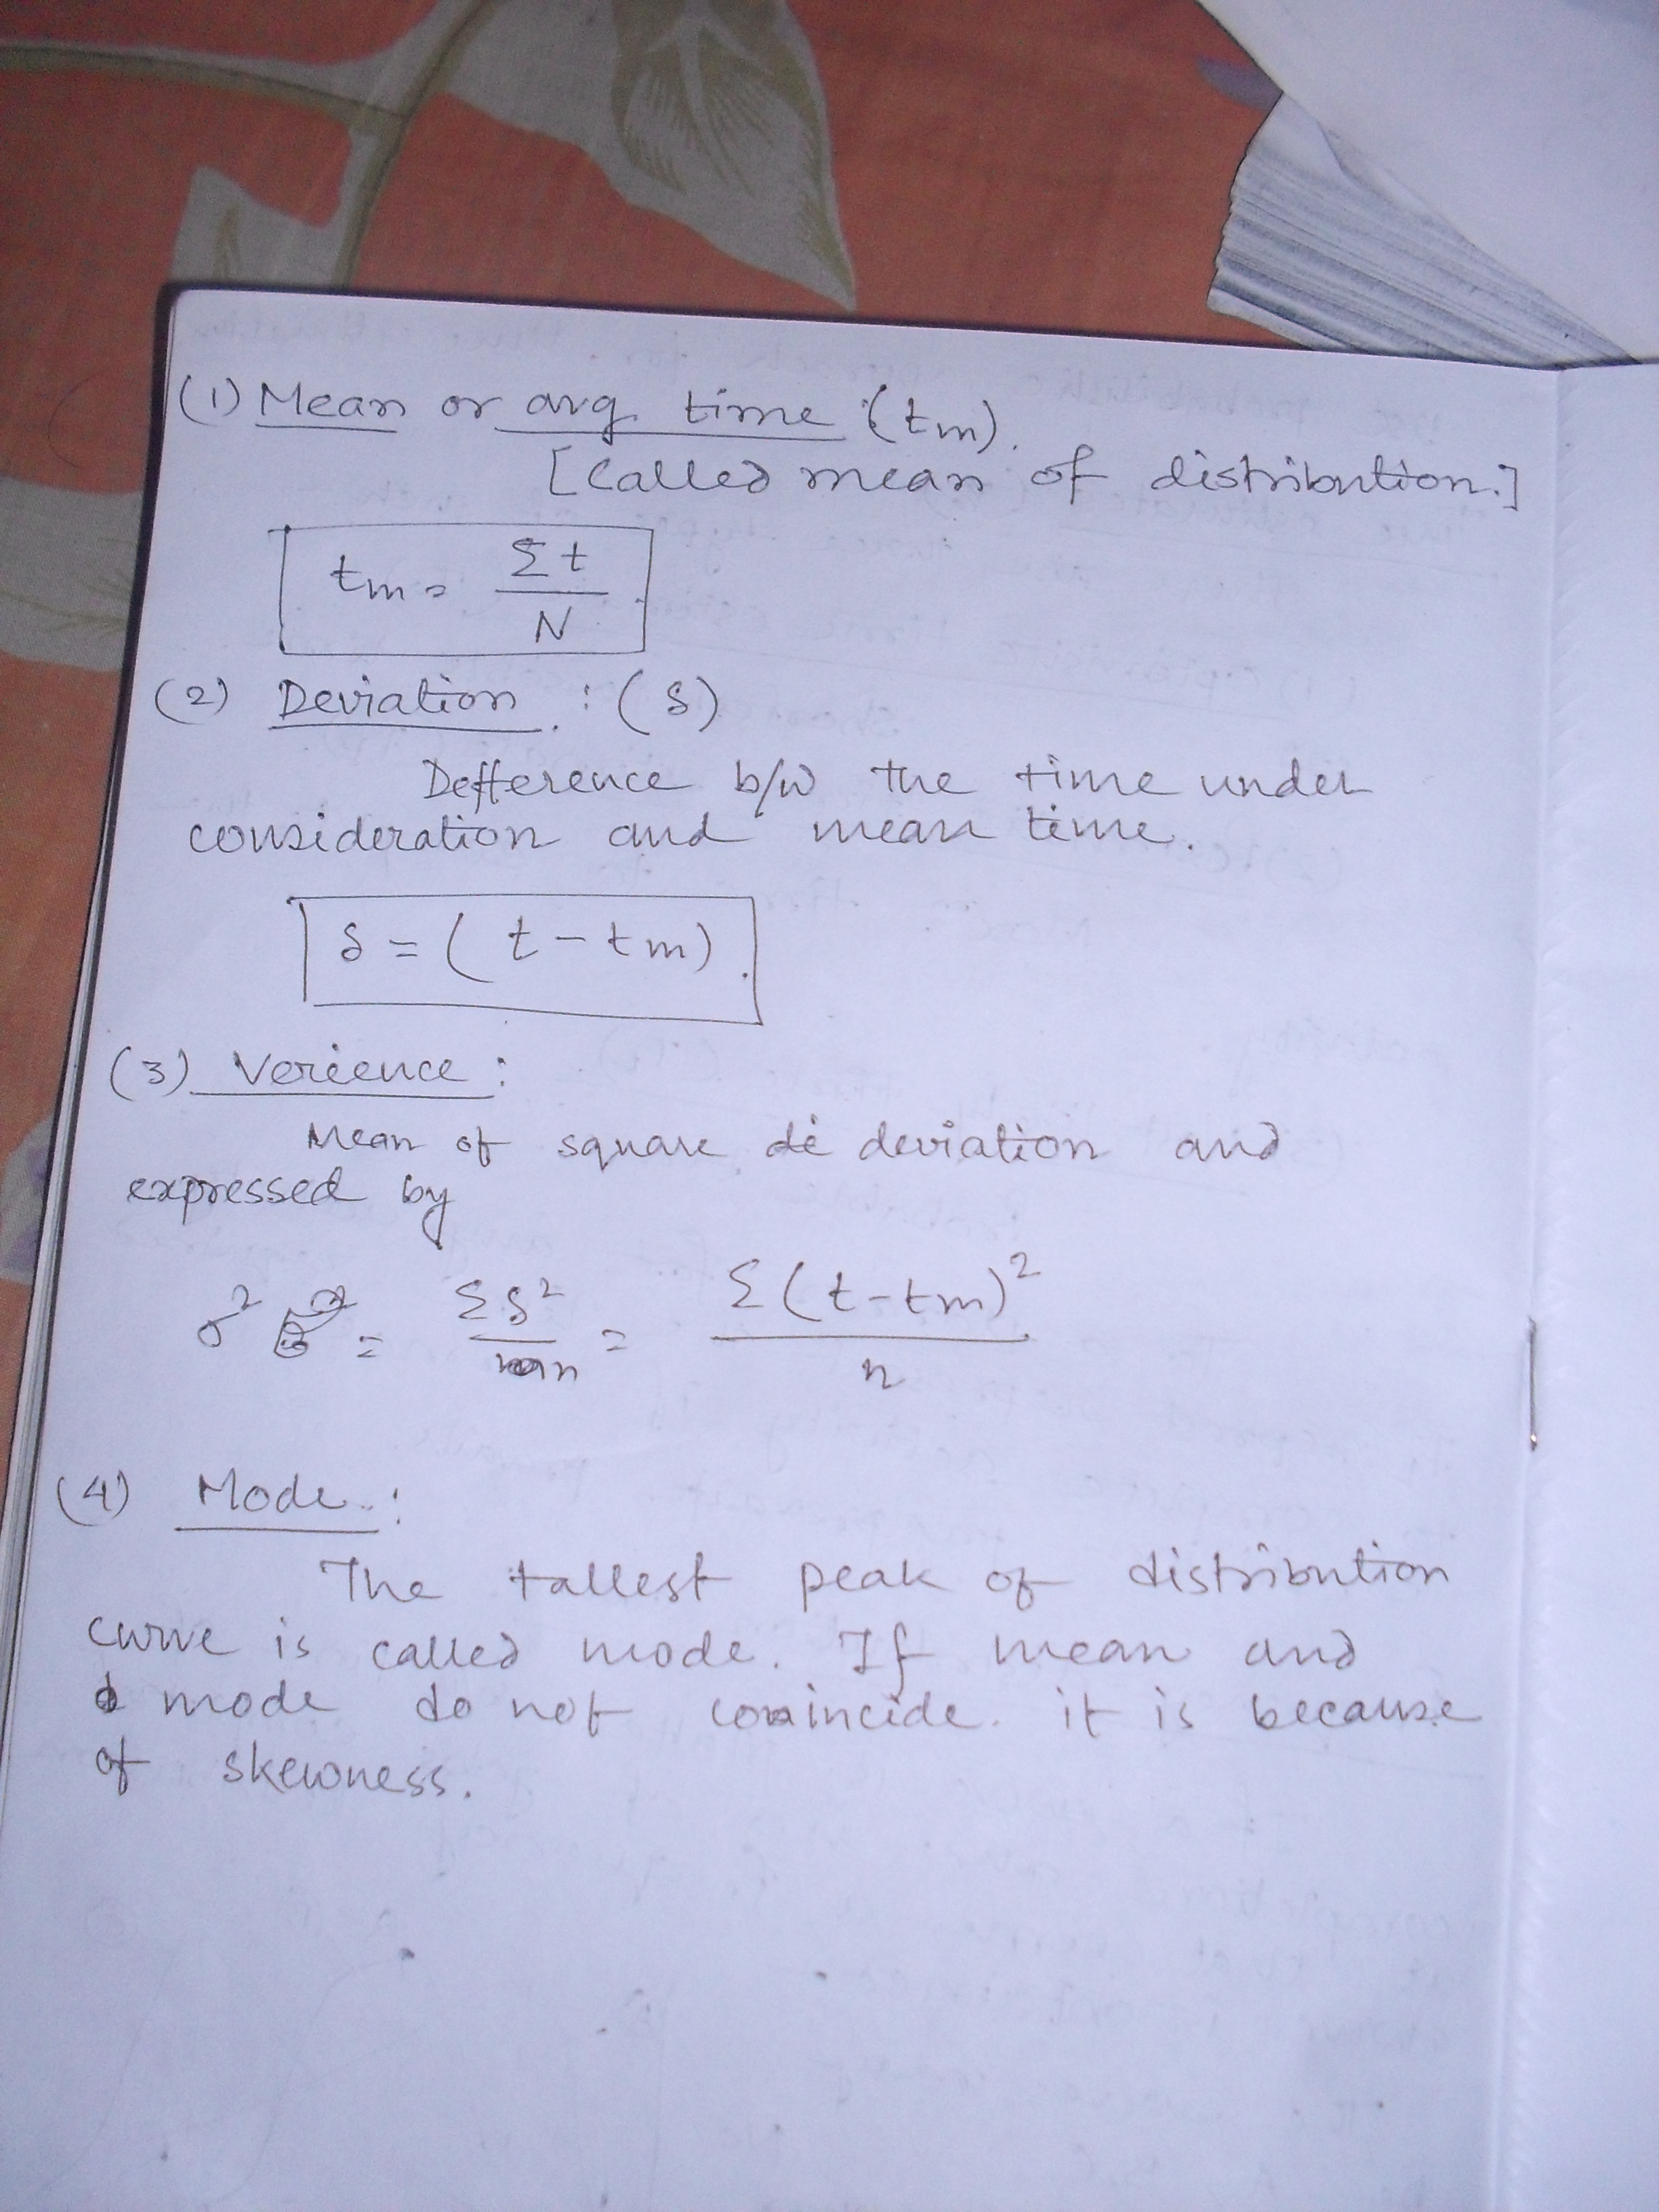 (1) Mean or avg. time : (tm).
[Called mean of distribution.]
tm = Σt / N.
(2) Deviation. : (δ)
Defference b/w the time under
consideration and mean time.
δ = (t - tm).
(3) Verience :
Mean of square de deviation and
expressed by
σ² = Σδ² / n = Σ(t-tm)² / n
(4) Mode. :
The tallest peak of distribution
curve is called mode. If mean and
mode do not coincide. it is because
of skewness.